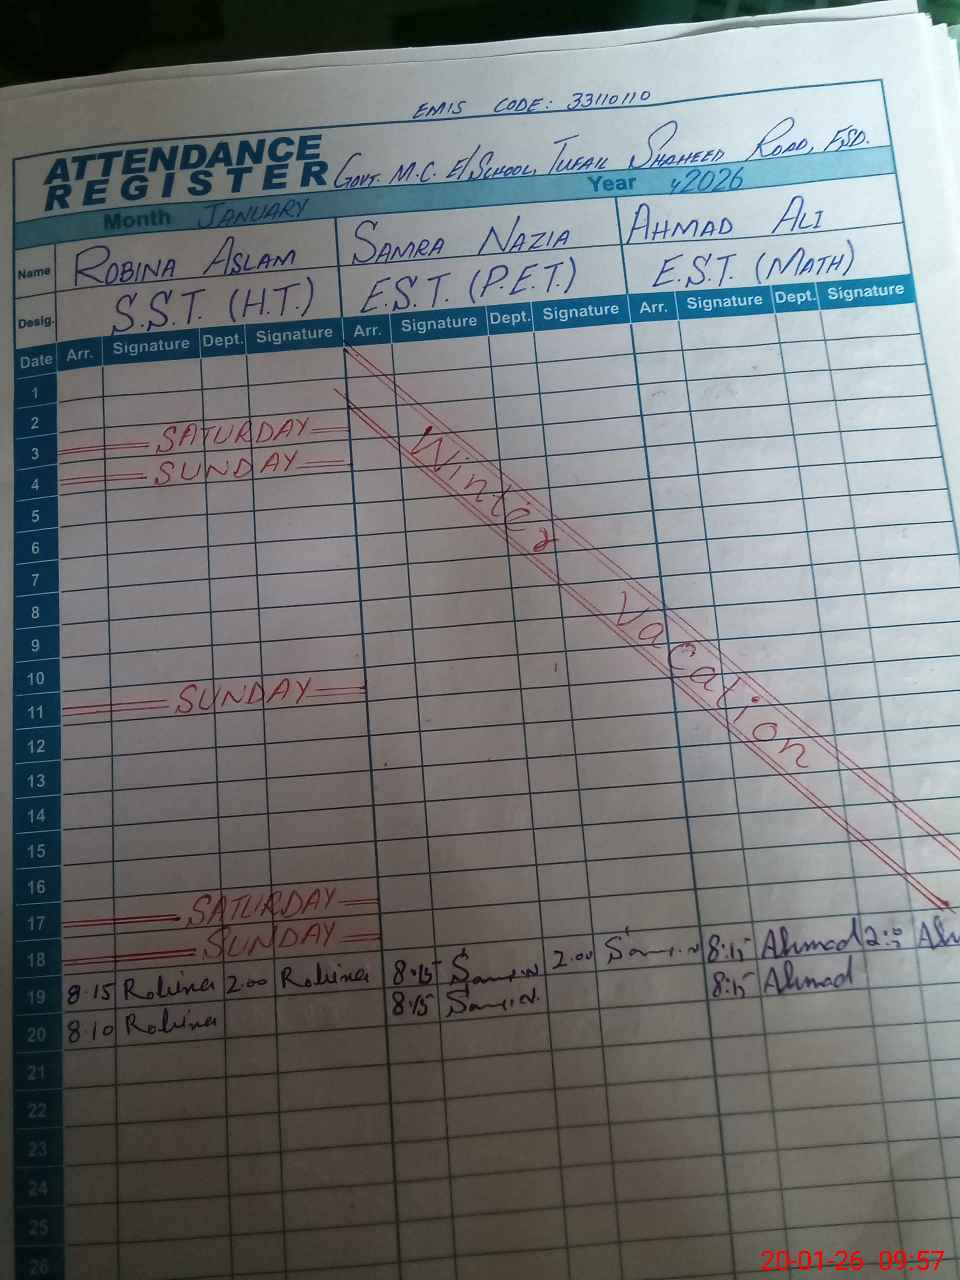 EMIS CODE: 33110110
ATTENDANCE
REGISTER Govt. M.C. E/School, Tufail Shaheed Road, FSD.
Month JANUARY Year 2026
Name ROBINA ASLAM SAMRA NAZIA AHMAD ALI
Desig. S.S.T. (H.T.) E.S.T. (P.E.T.) E.S.T. (MATH)
Date Arr. Signature Dept. Signature Arr. Signature Dept. Signature Arr. Signature Dept. Signature
1
2
3 SATURDAY
4 SUNDAY
Winter Vacation
5
6
7
8
9
10
11 SUNDAY
12
13
14
15
16
17 SATURDAY
18 SUNDAY
19 8:15 Robina 2:00 Robina 8:15 2:00 8:15 Ahmad
20 8:10 Robina 8:15 8:15 Ahmad
21
22
23
24
25
26
20-01-26 09:57